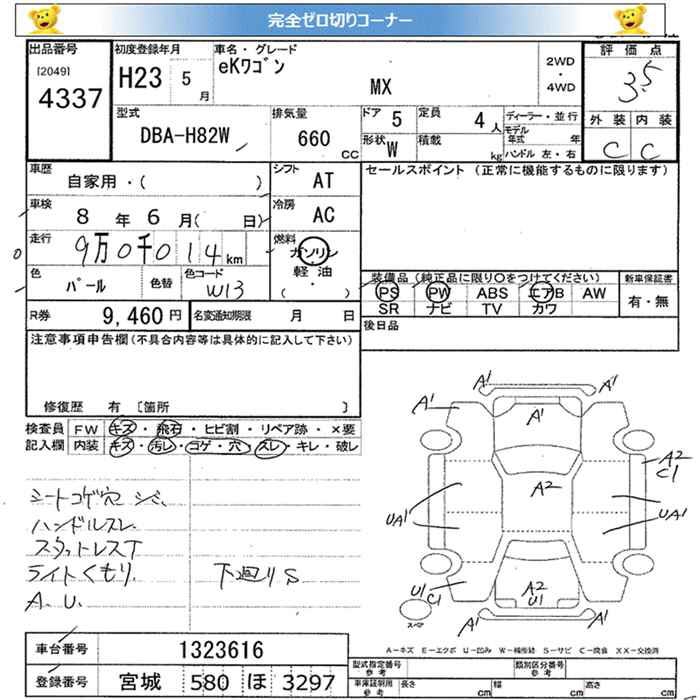 完全ゼロ切りコーナー
出品番号 [2049] 4337
初度登録年月 H23 5月
車名・グレード eKワゴン MX
2WD・4WD
評価点 3.5
型式 DBA-H82W
排気量 660 CC
ドア 5 定員 4人
形状 W 積載 kg
ディーラー・並行
モデル年式 年
ハンドル 左・右
外装 C 内装 C
車歴 自家用・( )
シフト AT
セールスポイント (正常に機能するものに限ります)
車検 8年6月( 日)
冷房 AC
走行 9万0千014km
燃料 ガソリン・軽油 ( ・ )
色 パール 色替 色コード W13
装備品 (純正品に限り○をつけてください) 新車保証書
PS PW ABS エアB AW 有・無
SR ナビ TV カワ
R券 9,460円 名変通知期限 月 日
後日品
注意事項申告欄(不具合内容等は具体的に記入して下さい)
修復歴 有 [箇所 ]
検査員記入欄
FW キズ・飛石・ヒビ割・リペア跡・×要
内装 キズ・汚レ・コゲ・穴・スレ・キレ・破レ
シートコゲ穴 シミ、
ハンドルスレ
スタットレスT
ライトくもり、 下廻りS
A.U.
A1 A1
A1 A1
A2
A2
C1
UA1 UA1
U1 C1
A2
U1
スペア
A1 A1
A−キズ E−エクボ U−凹み W−補修跡 S−サビ C−腐食 XX−交換済
車台番号 1323616
登録番号 宮城 580 ほ 3297
型式指定番号 参考 類別区分番号 参考
車庫証明用 参考 長さ cm 幅 cm 高さ cm